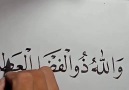 وَاللّٰهُ ذُو الْفَضْلِ الْعَظ